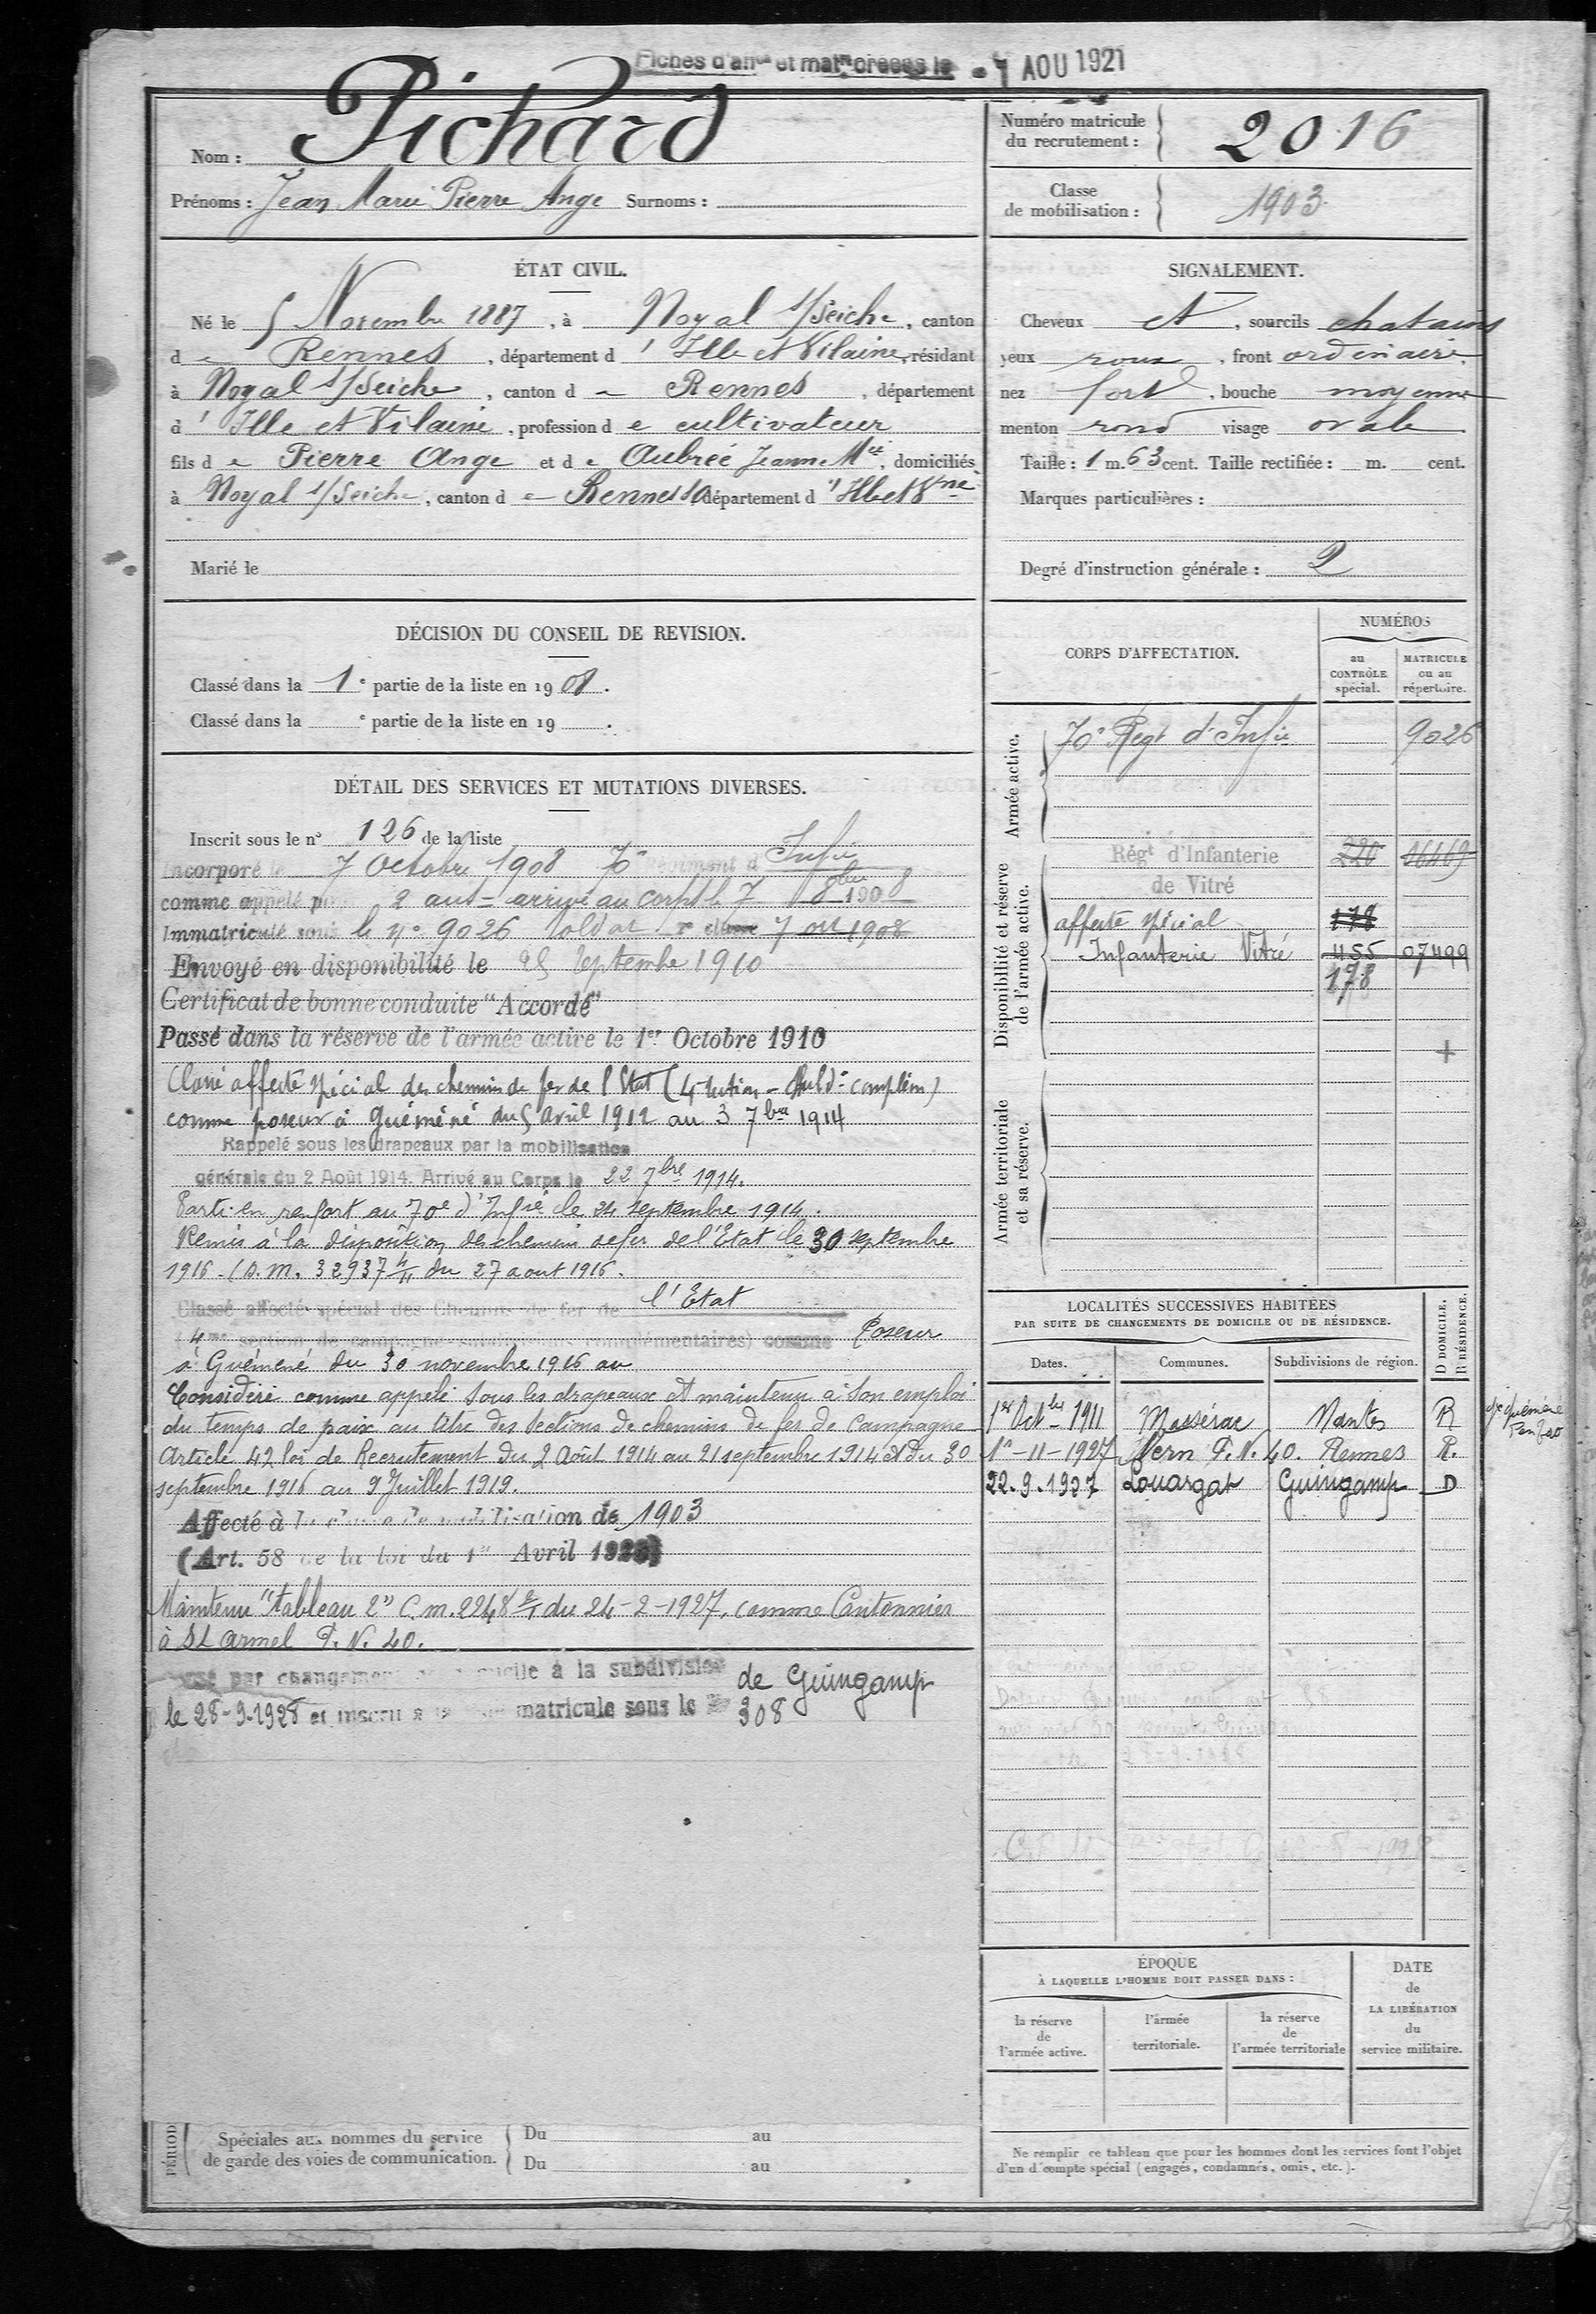 Fiches d'affon et matres créées le - 7 AOU 1921
Nom : Pichard
Prénoms : Jean Marie Pierre Ange Surnoms :
Numéro matricule du recrutement : 2016
Classe de mobilisation : 1903
ÉTAT CIVIL.
Né le 5 Novembre 1887, à Noyal s/Seiche, canton
de Rennes, département d'Ille et Vilaine, résidant
à Noyal s/Seiche, canton de Rennes, département
d'Ille et Vilaine, profession de cultivateur
fils de Pierre Ange et de Aubrée Jeanne Mie, domiciliés
à Noyal s/Seiche, canton de Rennes SO département d'Ille et Vne
Marié le
SIGNALEMENT.
Cheveux et, sourcils chatains
yeux roux, front ordinaire
nez fort, bouche moyenne
menton rond visage ovale
Taille : 1 m. 63 cent. Taille rectifiée : m. cent.
Marques particulières :
Degré d'instruction générale : 2
DÉCISION DU CONSEIL DE REVISION.
Classé dans la 1e partie de la liste en 1908.
Classé dans la e partie de la liste en 19 .
DÉTAIL DES SERVICES ET MUTATIONS DIVERSES.
Inscrit sous le n° 126 de la liste
Incorporé le 7 Octobre 1908 70e Régiment d'Infie
comme appelé pour 2 ans - arrivé au corps le 7 8bre 1908
Immatriculé sous le n° 9026 soldat 2e classe 7 oct 1908
Envoyé en disponibilité le 25 Septembre 1910
Certificat de bonne conduite "Accordé"
Passé dans la réserve de l'armée active le 1er Octobre 1910
Classé affecté spécial des chemins de fer de l'Etat (4e section - complém)
comme poseur à Guéméné du 5 avril 1912 au 3 7bre 1914
Rappelé sous les drapeaux par la mobilisation
générale du 2 Août 1914. Arrivé au Corps le 22 7bre 1914.
Parti en renfort au 70e d'Infie le 24 septembre 1914.
Remis à la disposition des chemins de fer de l'Etat le 30 septembre
1916. (D.M. 32937 4/11 du 27 aout 1916.
Classé affecté spécial des Chemins de fer de l'Etat
(4me section de campagne complémentaires) comme Poseur
à Guéméné du 30 novembre 1916 au
Considéré comme appelé sous les drapeaux et maintenu à son emploi
du temps de paix au titre des Sections de chemins de fer de Campagne
Article 42 loi de Recrutement du 2 Août 1914 au 21 septembre 1914 et du 30
septembre 1916 au 9 Juillet 1919.
Affecté à la classe de mobilisation de 1903
(Art. 58 de la loi du 1er Avril 1923)
Maintenu "tableau 2" C.m. 2248 2/1 du 24-2-1927, comme Cantonnier
à St Armel P.N. 40.
Passé par changement de domicile à la subdivision de Guingamp
le 28-9-1928 et inscrit à la matricule sous le No 308
CORPS D'AFFECTATION.
NUMÉROS
au CONTRÔLE spécial.
MATRICULE ou au répertoire.
Armée active.
70e Regt d'Infie 9026
Disponibilité et réserve de l'armée active.
Régt d'Infanterie 220 16469
de Vitré
affecté spécial 178
Infanterie Vitré 455 07499
178
+
Armée territoriale et sa réserve.
LOCALITÉS SUCCESSIVES HABITÉES
PAR SUITE DE CHANGEMENTS DE DOMICILE OU DE RÉSIDENCE.
Dates. Communes. Subdivisions de région. D DOMICILE. R RÉSIDENCE.
1er Octbre 1911 Massérac Nantes R
1er-11-1927 Vern P.N. 40. Rennes R.
22.9.1927 Louargat Guingamp D
ÉPOQUE
À LAQUELLE L'HOMME DOIT PASSER DANS :
la réserve de l'armée active.
l'armée territoriale.
la réserve de l'armée territoriale
DATE de LA LIBÉRATION du service militaire.
PÉRIOD
Spéciales aux hommes du service
de garde des voies de communication.
Du au
Du au
Ne remplir ce tableau que pour les hommes dont les services font l'objet
d'un décompte spécial (engagés, condamnés, omis, etc.).